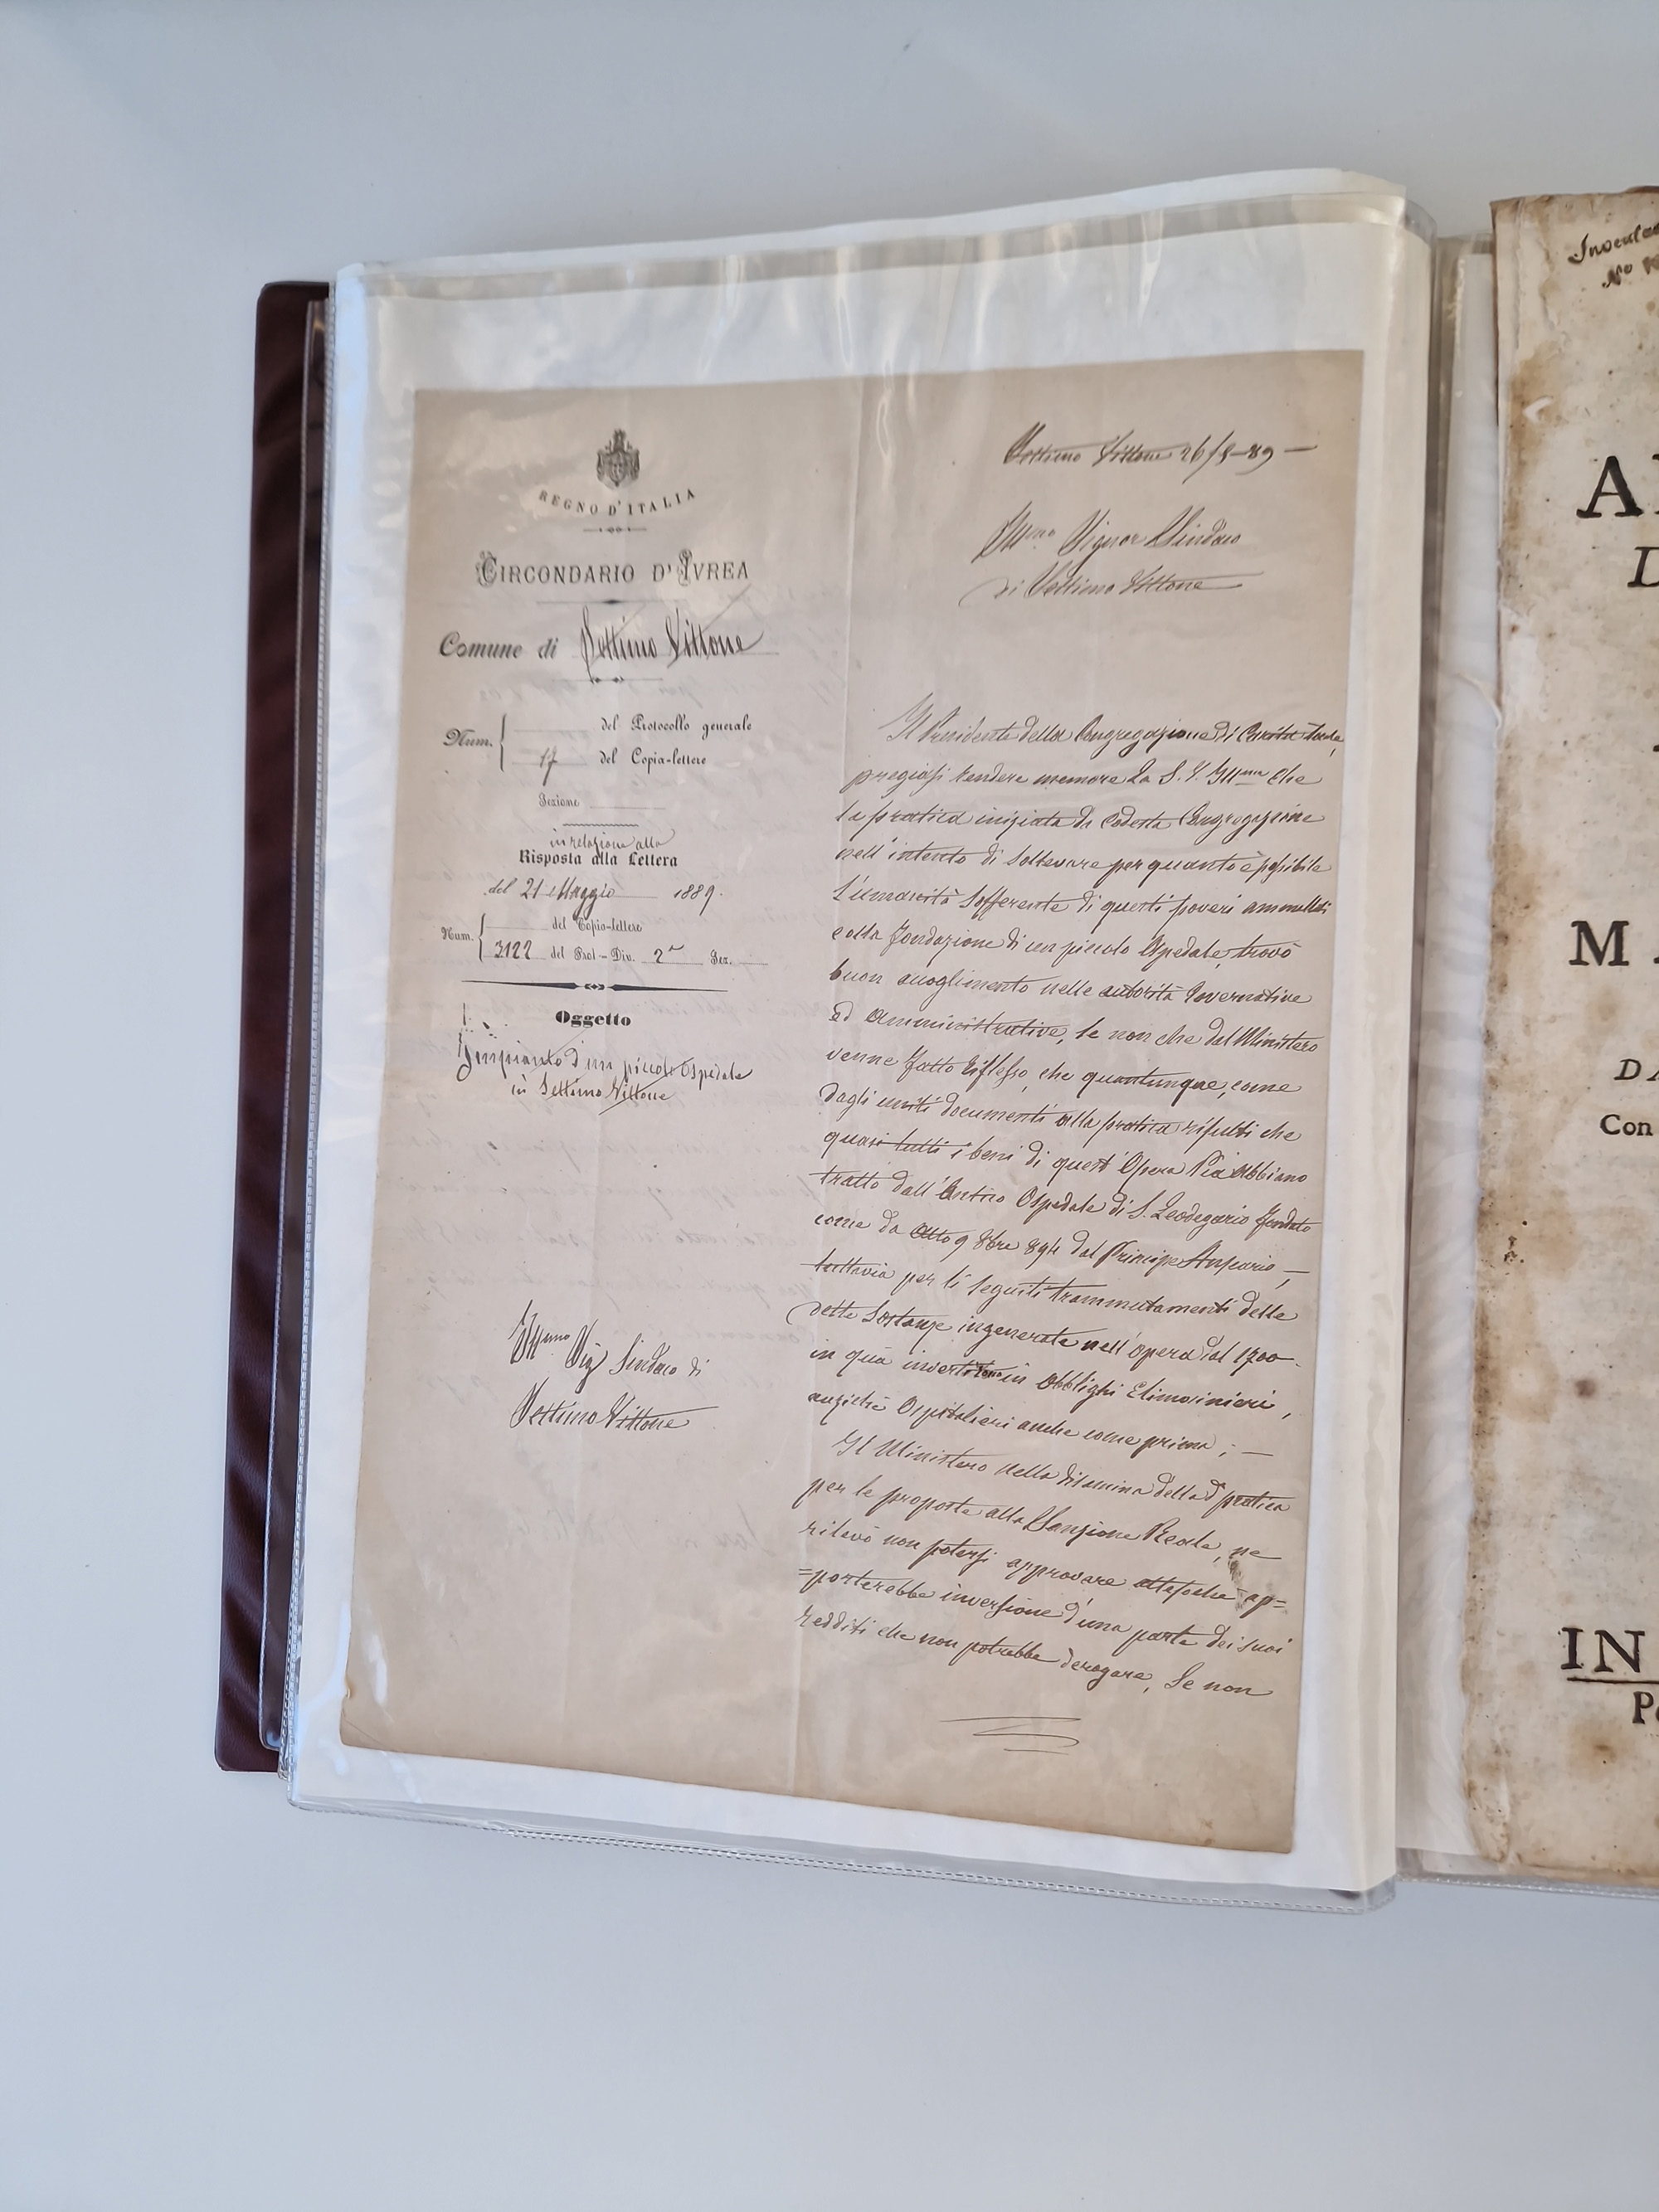 REGNO D'ITALIA
CIRCONDARIO D'IVREA
Comune di Settimo Vittone
Num.
del Protocollo generale
17 del Copia-lettere
Sezione
in relazione alla
Risposta alla Lettera
del 21 Maggio 1889.
Num.
del Copia-lettere
3122 del Prot - Div. 2a Sez.
Oggetto
Impianto d'un piccolo Ospedale
in Settimo Vittone
Ill.mo Sig. Sindaco di
Settimo Vittone
Settimo Vittone 26/5-89 —
Ill.mo Signor Sindaco
di Settimo Vittone
Il Presidente della Congregazione di Carità locale,
pregiasi rendere memore La S. V. Ill.ma che
la pratica iniziata da codesta Congregazione
nell'intento di sollevare per quanto è possibile
l'umanità sofferente di questi poveri ammalati
colla fondazione di un piccolo Ospedale, trovò
buon accoglimento nelle autorità Governative
ed Amministrative, se non che dal Ministero
venne fatto riflesso, che quantunque, come
dagli uniti documenti alla pratica risulti che
quasi tutti i beni di quest'Opera Pia abbiano
tratto dall'Antico Ospedale di S. Leodegario fondato
come da Atto 9 8bre 894 dal Principe Ansario, —
tuttavia per li seguiti trammutamenti delle
dette Sostanze ingenerate nell'opera dal 1700
in quà in Obblighi Elimosinieri,
anzichè Ospitalieri anche come prima; —
Il Ministero nella disamina della d.a pratica
per le proposte alla Sanzione Reale, ne
rilevò non potersi approvare attesochè ap=
=porterebbe inversione d'una parte dei suoi
redditi che non potrebbe derogare, Se non
Inocula
No
A
D
M
DA
Con
IN
P